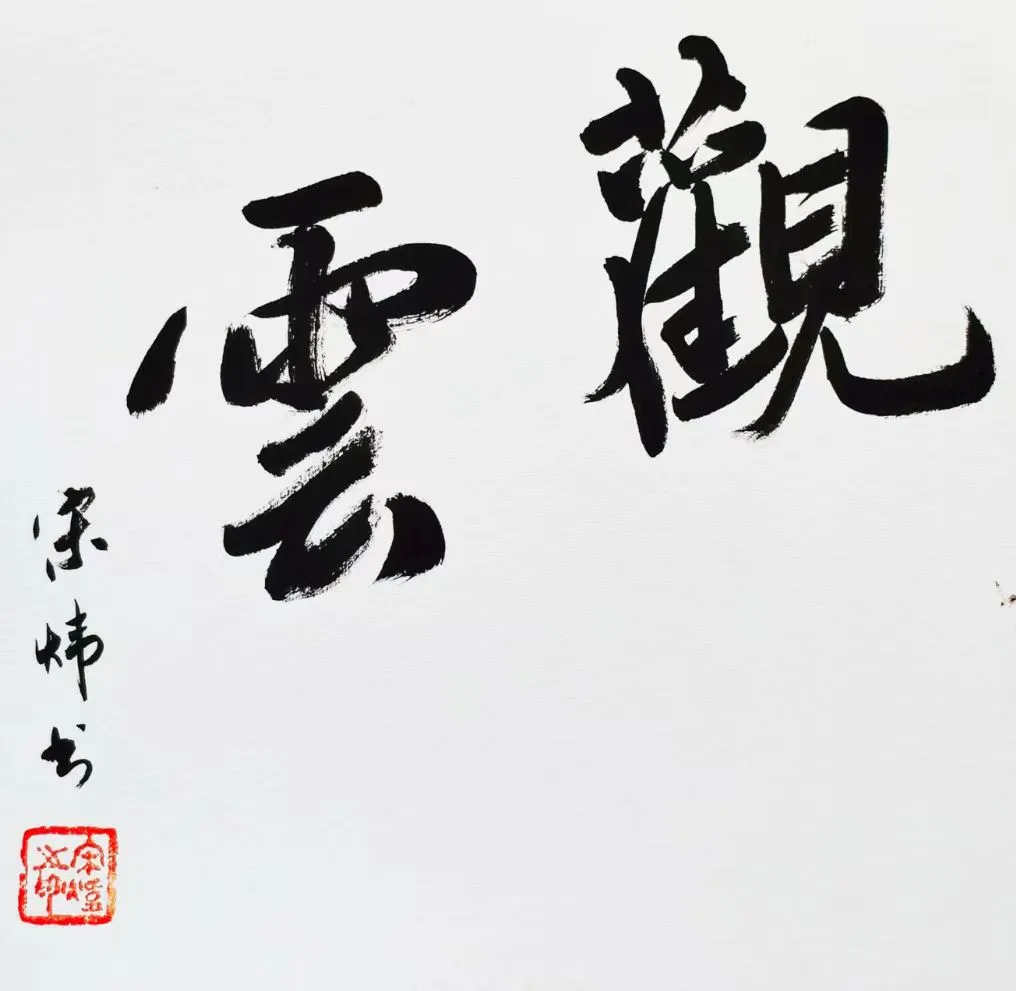 觀雲
宋炜书